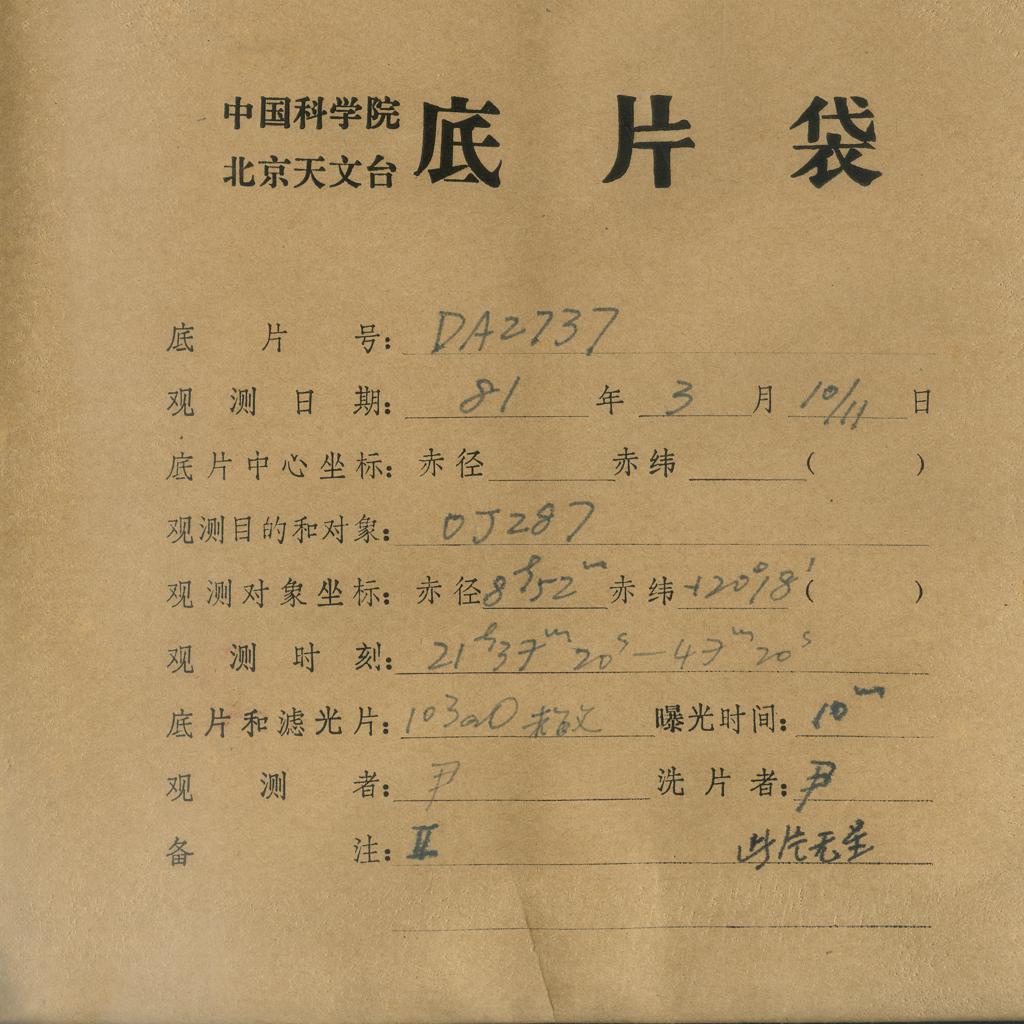 中国科学院
北京天文台
底片袋
底片号: DA2737
观测日期: 81年3月10/11日
底片中心坐标: 赤径 赤纬 ( )
观测目的和对象: OJ287
观测对象坐标: 赤径8ʰ52ᵐ 赤纬+20°18′( )
观测时刻: 21ʰ37ᵐ20ˢ—47ᵐ20ˢ
底片和滤光片: 103aO 未敏 曝光时间: 10ᵐ
观测者: 尹 洗片者: 尹
备注: II 此片无星